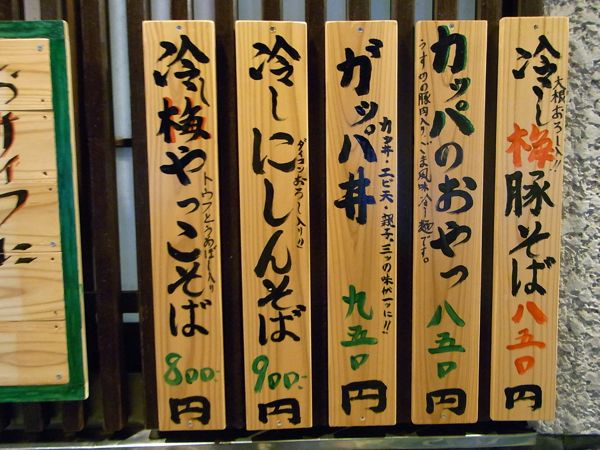 冷し梅豚そば八五〇円
大根おろし入り!!
カッパのおやつ八五〇円
うす切りの豚肉入り、ごま風味冷し麺です。
ガッパ丼九五〇円
カツ丼・エビ天・親子、三ッの味が一ッに!!
冷しにしんそば900-円
ダイコンおろし入り!!
冷し梅やっこそば800-円
トウフと
入り